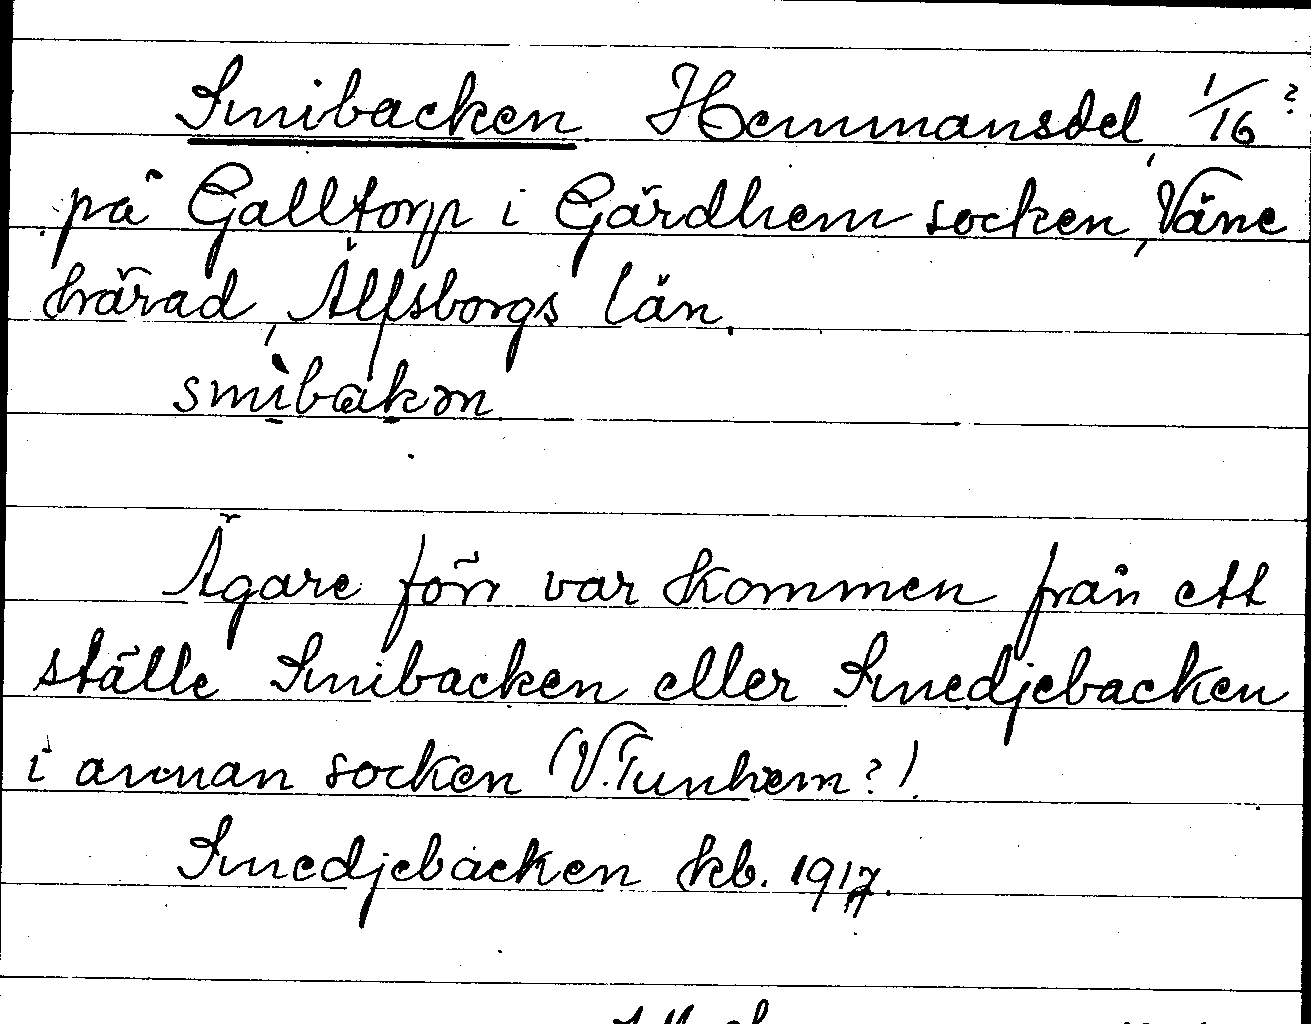 Smibacken Hemmansdel, 1/16?
på Galltorp i Gärdhem socken, Väne
härad, Älfsborgs län.
smìbakən
Ägare förr var kommen från ett
ställe Smibacken eller Smedjebacken
i annan socken (V. Tunhem?).
Smedjebacken kb. 1917.